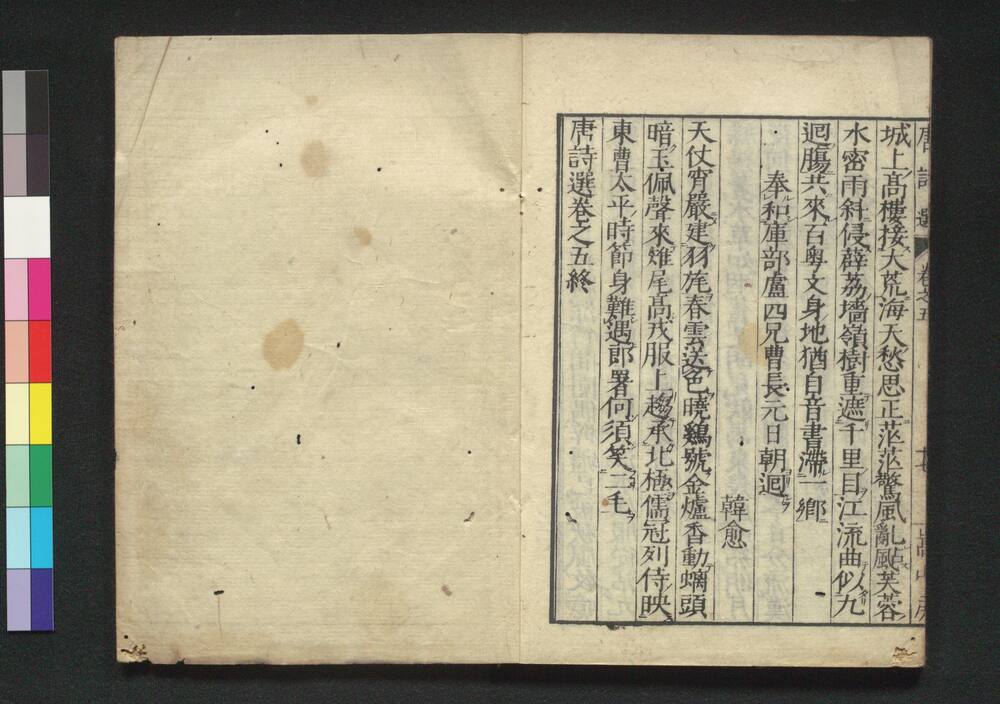 唐詩選 卷之五
城上髙樓接大荒海天愁思正茫茫驚風亂颭芙蓉
水密雨斜侵薜荔墻嶺樹重遮千里目江流曲似九
迴膓共來百粤文身地猶自音書滯一鄉
奉和庫部盧四兄曹長元日朝迴
韓愈
天仗宵嚴建羽旄春雲送色曉鷄號金爐香動螭頭
暗玉佩聲來雉尾髙戎服上趨承北極儒冠列侍映
東曹太平時節身難遇郎署何須笑二毛
唐詩選卷之五終